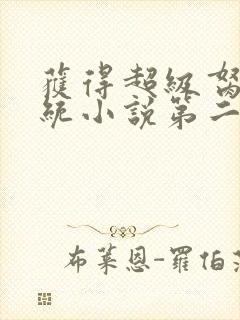 獲得超級
統小說第二
布萊恩-羅伯